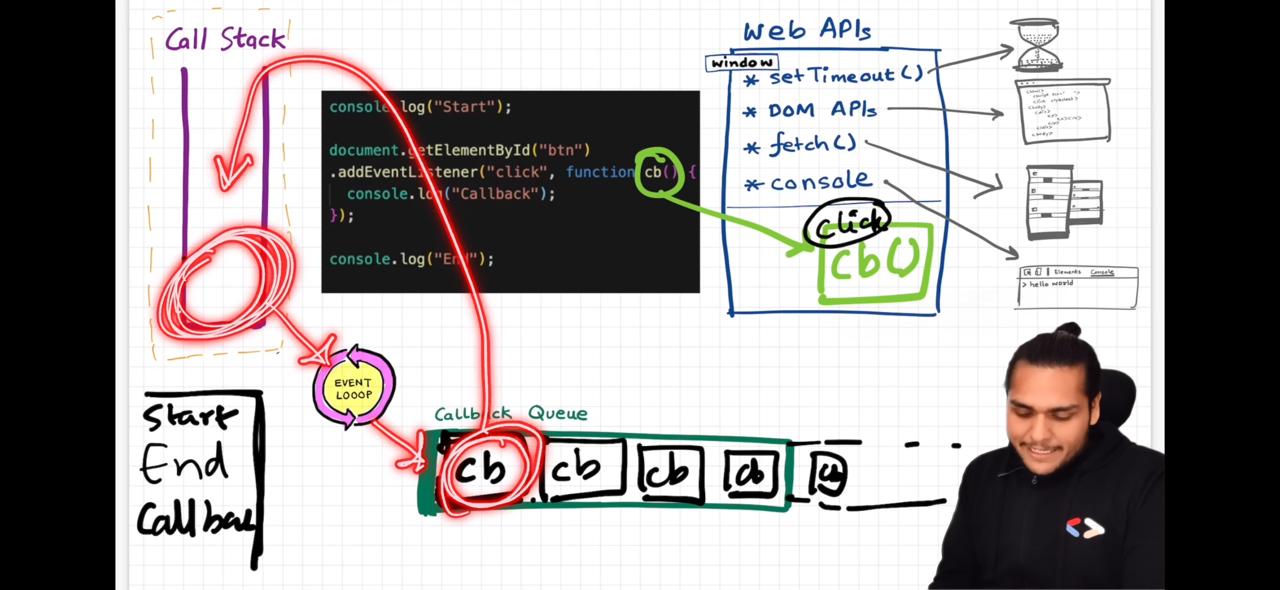 Call Stack
console.log("Start");
document.getElementById("btn")
.addEventListener("click", function cb() {
console.log("Callback");
});
console.log("End");
Web APIs
window
* setTimeout()
* DOM APIs
* fetch()
* console
click
cb()
Elements Console
> hello world
EVENT
LOOOP
Start
End
Callbac
Callback Queue
cb cb cb cb cb